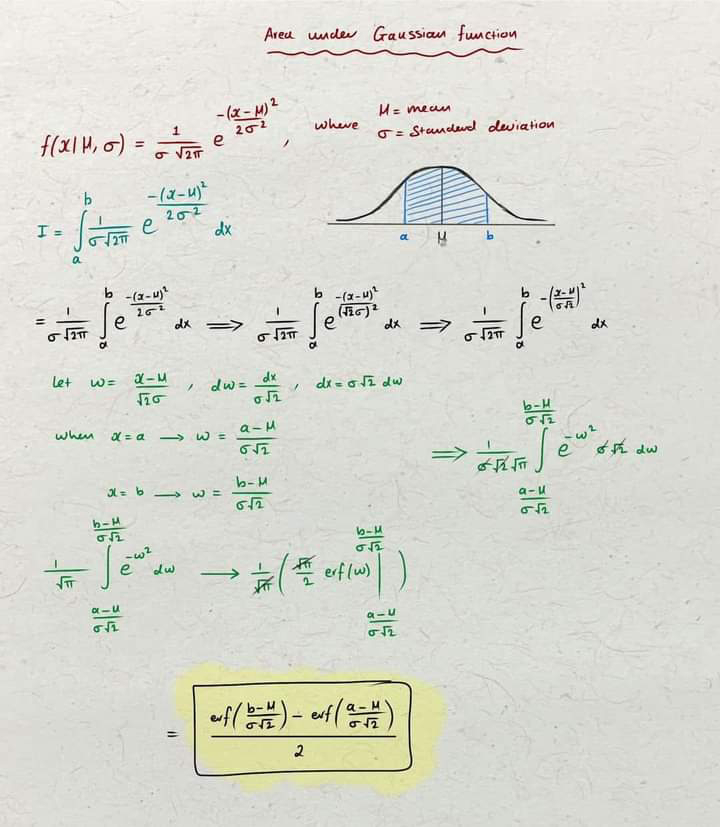 Area under Gaussian function
f(x|μ, σ) = 1/(σ√2π) e^(-(x-μ)²/2σ²) , where μ = mean
σ = Standerd deviation
I = ∫_a^b 1/(σ√2π) e^(-(x-μ)²/2σ²) dx
a μ b
= 1/(σ√2π) ∫_a^b e^(-(x-μ)²/2σ²) dx ⟹ 1/(σ√2π) ∫_a^b e^(-(x-μ)²/(√2σ)²) dx ⟹ 1/(σ√2π) ∫_a^b e^(-((x-μ)/(σ√2))²) dx
Let w = (x-μ)/(√2σ) , dw = dx/(σ√2) , dx = σ√2 dw
when x = a → w = (a-μ)/(σ√2)
⟹ 1/(σ√2√π) ∫_((a-μ)/(σ√2))^((b-μ)/(σ√2)) e^(-w²) σ√2 dw
x = b → w = (b-μ)/(σ√2)
1/√π ∫_((a-μ)/(σ√2))^((b-μ)/(σ√2)) e^(-w²) dw → 1/√π ( √π/2 erf(w) |_((a-μ)/(σ√2))^((b-μ)/(σ√2)) )
= (erf((b-μ)/(σ√2)) - erf((a-μ)/(σ√2)))/2